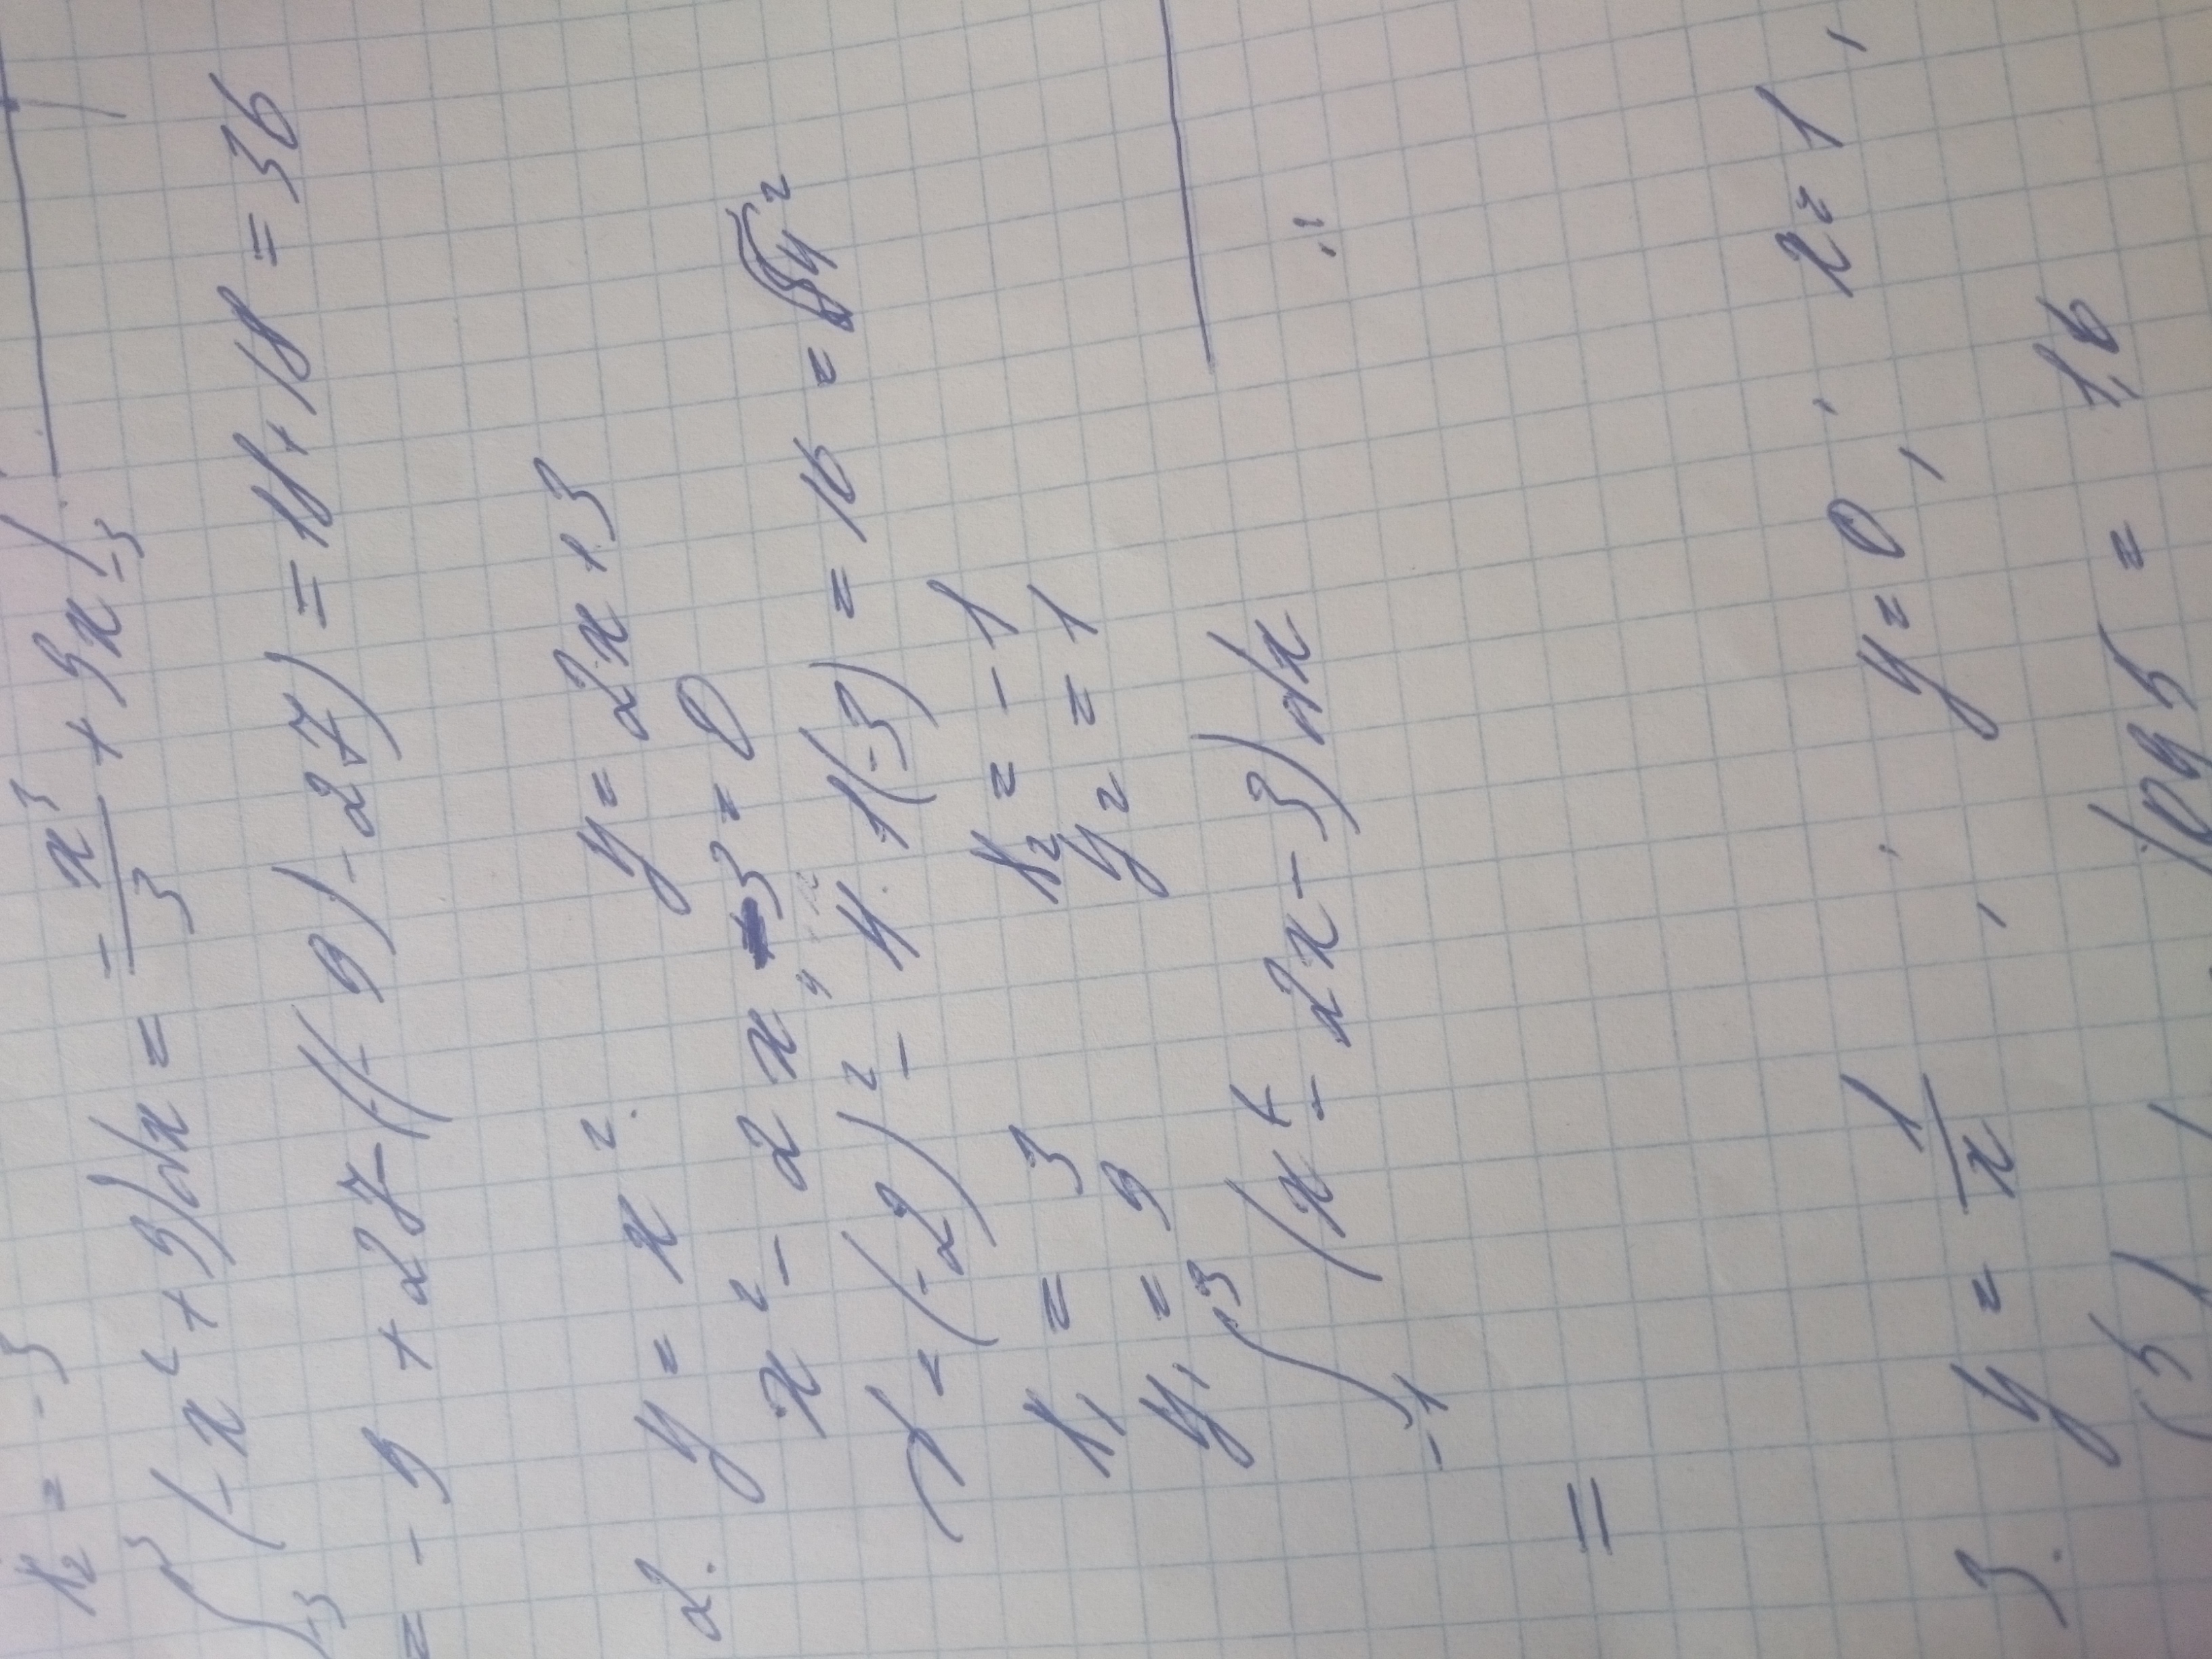 x₂ = -3
∫₋₃³ (-x² + 9)dx = -x³/3 + 9x |₋₃
= -9 + 27 - ((-9) - 27) = 18 + 18 = 36
2. y = x². y = 2x + 3
x² - 2x - 3 = 0
D = (-2)² - 4 · 1(-3) = 16 = 4²
x₁ = 3 x₂ = -1
y₁ = 9 y₂ = 1
∫₋₁³ (x² - 2x - 3)dx
=
3. y = 1/x, y = 0,
= 1,6